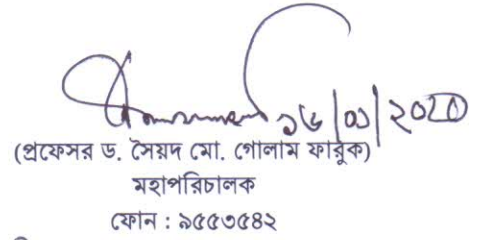 (প্রফেসর ড. সৈয়দ মো. গোলাম ফারুক)
মহাপরিচালক
ফোন : ৯৫৫৩৫৪২